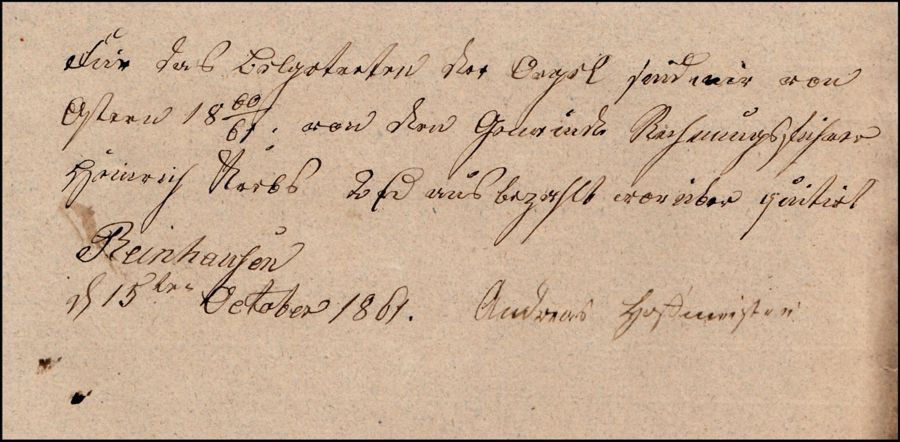 Für das Belgetreten der Orgel sind mir von
Ostern 18 60/61. von den Gemeinde Rechnungsführer
Heinrich Kerbs 2 ausbezahlt worüber quitirt
Reinhausen
d 15ten October 1861. Andreas Hofmeister